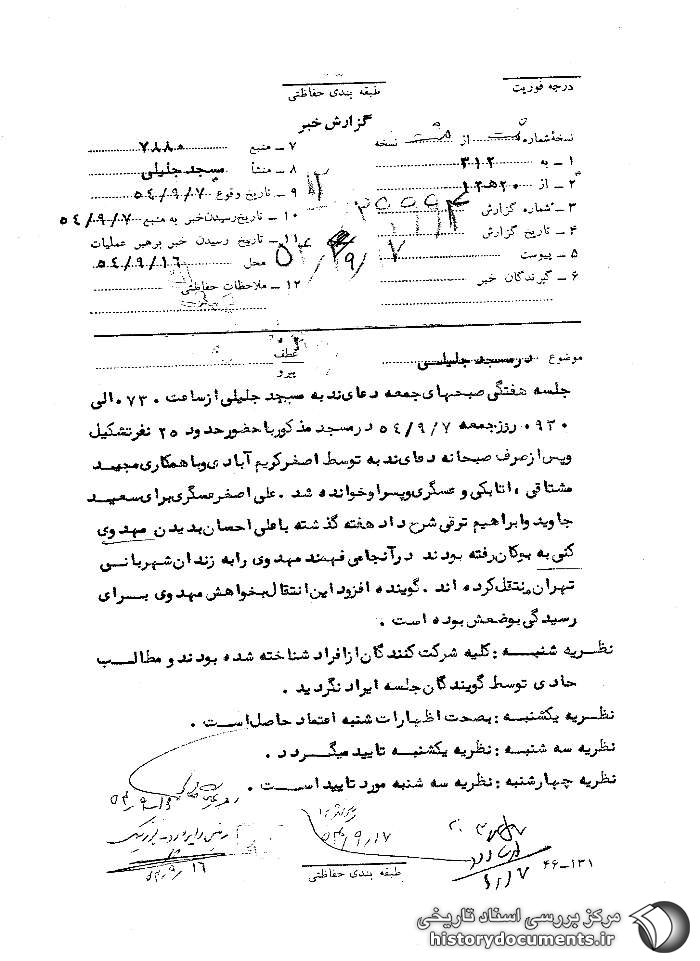 درجه فوریت
طبقه بندی حفاظتی
گزارش خبر
نسخه شماره هشت از هشت نسخه
۱ ـ به ۳۱۲
۲ ـ از ۲۰ ه ۱۲
۳ ـ شماره گزارش
۴ ـ تاریخ گزارش
۵ ـ پیوست
۶ ـ گیرندگان خبر
۷ ـ منبع ۷۸۸۰
۸ ـ منشأ مسجد جلیلی
۹ ـ تاریخ وقوع ۵۴/۹/۷
۱۰ ـ تاریخ رسیدن خبر به منبع ۵۴/۹/۷
۱۱ ـ تاریخ رسیدن خبر برهبر عملیات
محل ۵۴/۹/۱۶
۱۲ ـ ملاحظات حفاظتی
موضوع در مسجد جلیلی
عطف
پیرو
جلسه هفتگی صبحهای جمعه دعای ندبه مسجد جلیلی از ساعت ۰۷۳۰ الی
۰۹۳۰ روز جمعه ۵۴/۹/۷ در مسجد مذکور با حضور حدود ۲۵ نفر تشکیل
و پس از صرف صبحانه دعای ندبه توسط اصغر کریم آبادی و با همکاری مجید
مشتاقی ، اتابکی و عسگری و پسر او خوانده شد . علی اصغر عسگری برای سعید
جاوید و ابراهیم ترقی شرح داد هفته گذشته با علی احسان بدیدن مهدوی
کنی به بوکان رفته بودند در آنجا می فهمند مهدوی را به زندان شهربانی
تهران منتقل کرده اند . گوینده افزود این انتقال بخواهش مهدوی برای
رسیدگی بوضعش بوده است .
نظریه شنبه : کلیه شرکت کنندگان از افراد شناخته شده بودند و مطالب
حادی توسط گویندگان جلسه ایراد نگردید .
نظریه یکشنبه : بصحت اظهارات شنبه اعتماد حاصل است .
نظریه سه شنبه : نظریه یکشنبه تایید میگردد .
نظریه چهارشنبه : نظریه سه شنبه مورد تایید است .
۵۴/۹/۱۷
۵۴/۹/۱۶
طبقه بندی حفاظتی
۴۶-۱۳۱
مرکز بررسی اسناد تاریخی
historydocuments.ir